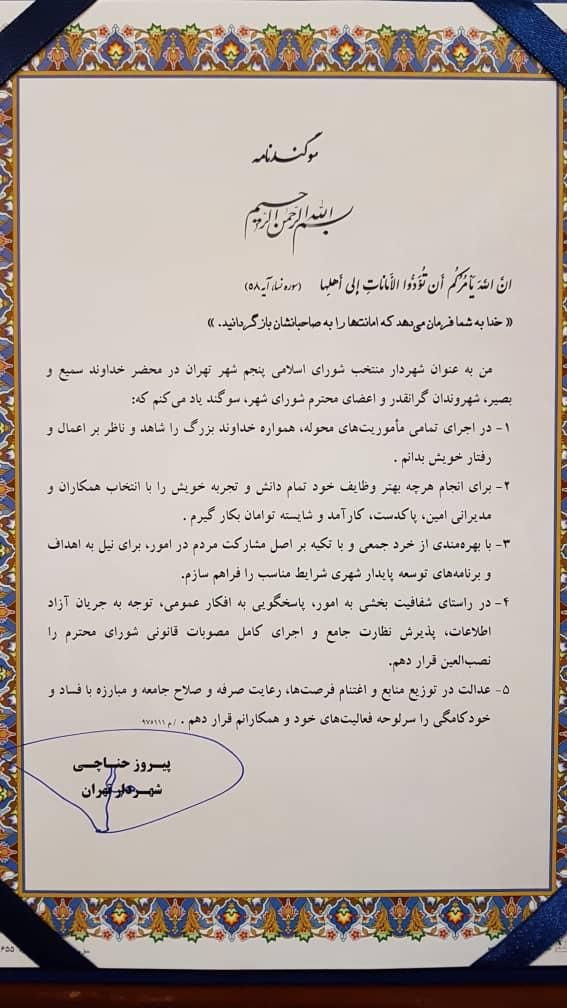 سوگندنامه
بسم الله الرحمن الرحیم
انَّ اللهَ یَأمُرُکُم أن تُؤَدُّوا الأماناتِ إلی أهلِها (سوره نساء، آیه ۵۸)
« خدا به شما فرمان می‌دهد که امانت‌ها را به صاحبانشان بازگردانید. »
من به عنوان شهردار منتخب شورای اسلامی پنجم شهر تهران در محضر خداوند سمیع و
بصیر، شهروندان گرانقدر و اعضای محترم شورای شهر، سوگند یاد می‌کنم که:
۱- در اجرای تمامی مأموریت‌های محوله، همواره خداوند بزرگ را شاهد و ناظر بر اعمال و
رفتار خویش بدانم .
۲- برای انجام هرچه بهتر وظایف خود تمام دانش و تجربه خویش را با انتخاب همکاران و
مدیرانی امین، پاکدست، کارآمد و شایسته توامان بکار گیرم .
۳- با بهره‌مندی از خرد جمعی و با تکیه بر اصل مشارکت مردم در امور، برای نیل به اهداف
و برنامه‌های توسعه پایدار شهری شرایط مناسب را فراهم سازم.
۴- در راستای شفافیت بخشی به امور، پاسخگویی به افکار عمومی، توجه به جریان آزاد
اطلاعات، پذیرش نظارت جامع و اجرای کامل مصوبات قانونی شورای محترم را
نصب‌العین قرار دهم.
۵- عدالت در توزیع منابع و اغتنام فرصت‌ها، رعایت صرفه و صلاح جامعه و مبارزه با فساد و
خودکامگی را سرلوحه فعالیت‌های خود و همکارانم قرار دهم . / م ۹۷۵۱۱۱
پیروز حناچی
شهردار تهران